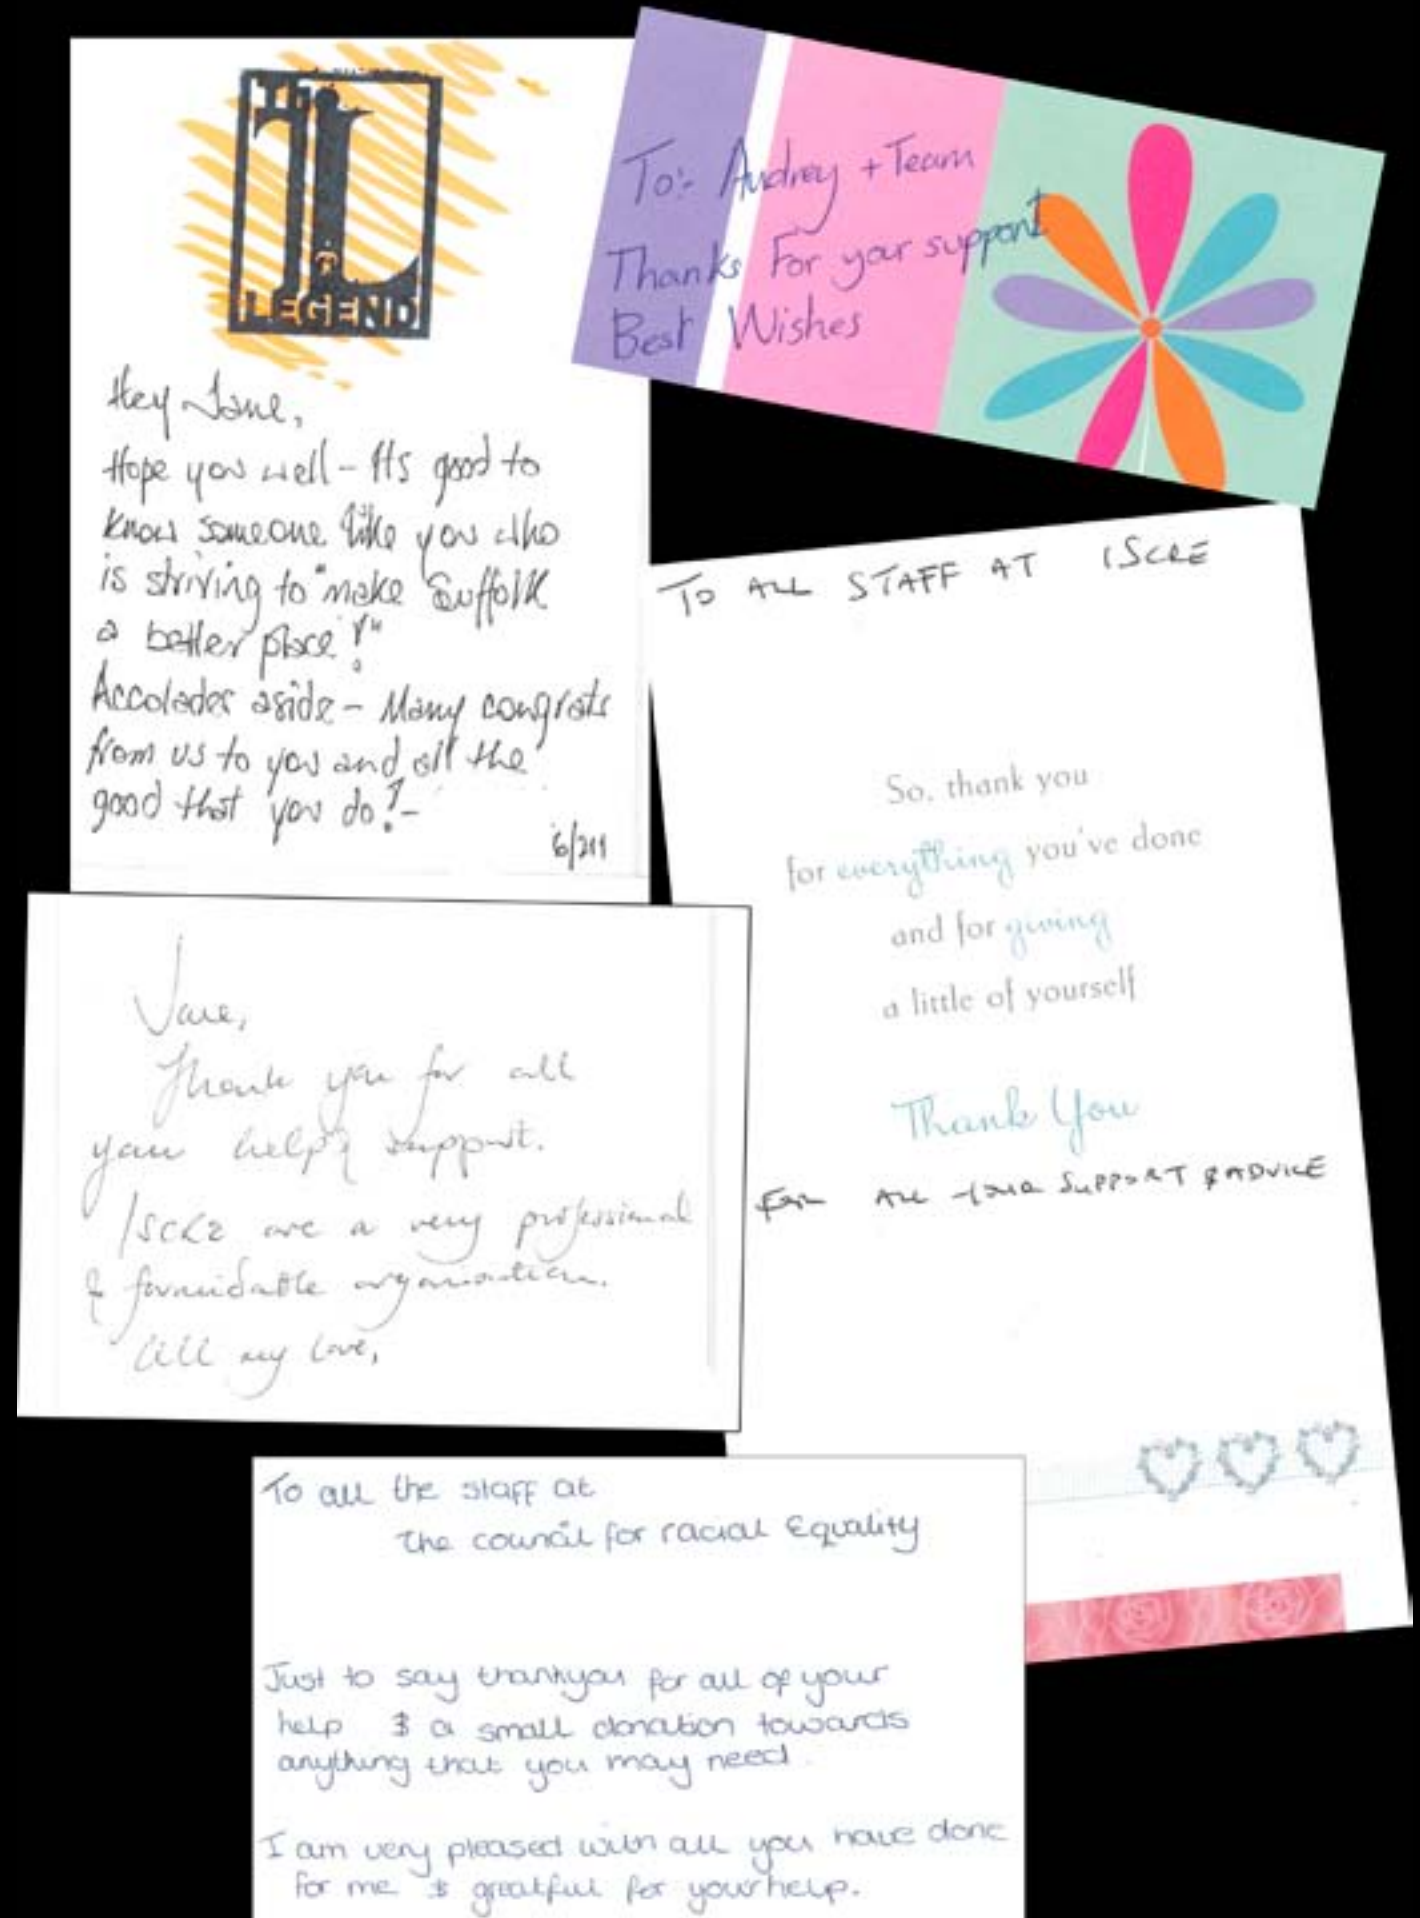 LEGEND
Hey Jane,
Hope you well - Its good to
know someone like you who
is striving to "make Suffolk
a better place!"
Accolades aside - Many congrats
from us to you and all the
good that you do! -
To:- Audrey + Team
Thanks For your support
Best Wishes
TO ALL STAFF AT ISCRE
So, thank you
for everything you've done
and for giving
a little of yourself
Thank You
FOR ALL YOUR SUPPORT & ADVICE
Jane,
Thank you for all
your help & support.
ISCRE are a very professional
& formidable organisation.
All my love,
To all the staff at
The council for racial Equality
Just to say thankyou for all of your
help & a small donation towards
anything that you may need.
I am very pleased with all you have done
for me & greatful for your help.